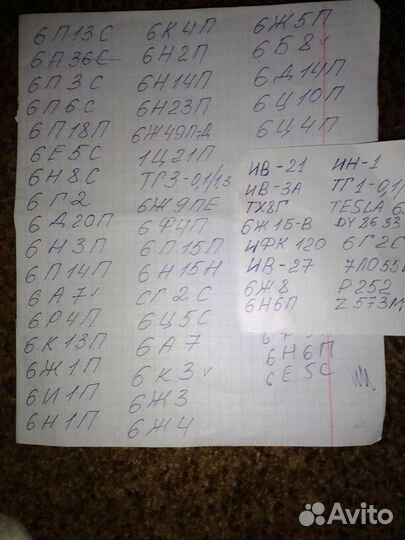 6П13С
6А36С
6П3С
6П6С
6П18П
6Е5С
6Н8С
6Г2
6Д20П
6Н3П
6П14П
6А7
6Р4П
6К13П
6Ж1П
6И1П
6Н1П
6К4П
6Н2П
6Н14П
6Н23П
6Ж49П-Д
1Ц21П
ТГ3-0,1/1,3
6Ж9ПЕ
6Ф4П
6П15П
6Н15Н
СГ2С
6Ц5С
6А7
6К3
6Ж3
6Ж4
6Ж5П
6Б8
6Д14П
6Ц10П
6Ц4П
6Н6П
6Е5С
ИВ-21
ИВ-3А
ТХ8Г
6Ж1Б-В
ИФК120
ИВ-27
6Ж8
6Н6П
ИН-1
ТГ1-0,1/
TESLA
DY8633
6Г2С
7ЛО55
Р252
Z573M
Avito